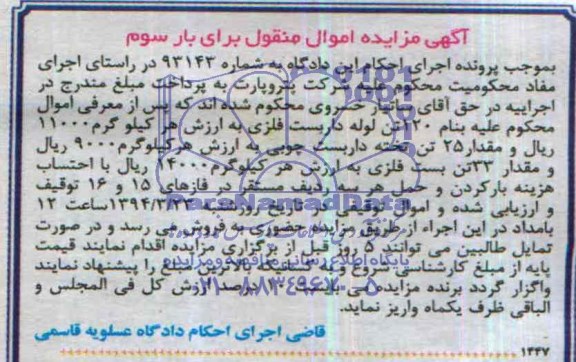 آگهی مزایده اموال منقول برای بار سوم
بموجب پرونده اجرای احکام این دادگاه به شماره ۹۳۱۴۳ در راستای اجرای
مفاد محکومیت محکوم علیه شرکت پتروپارت به پرداخت مبلغ مندرج در
اجراییه در حق آقای ساتیار خسروی محکوم شده اند که پس از معرفی اموال
محکوم علیه بنام ۱۲۰ تن لوله داربست فلزی به ارزش هر کیلو گرم ۱۱۰۰۰
ریال و مقدار ۲۵ تن تخته داربست چوبی به ارزش هر کیلوگرم ۹۰۰۰ ریال
و مقدار ۳۳ تن بست فلزی به ارزش هر کیلوگرم ۱۴۰۰۰ ریال با احتساب
هزینه بارکردن و حمل هر سه ردیف مستقر در فازهای ۱۵ و ۱۶ توقیف
و ارزیابی شده و اموال توقیفی در تاریخ روزشنبه ۱۳۹۴/۳/۲۳ ساعت ۱۲
بامداد در این اجراء از طریق مزایده حضوری به فروش می رسد و در صورت
تمایل طالبین می توانند ۵ روز قبل از برگزاری مزایده اقدام نمایند قیمت
پایه از مبلغ کارشناسی شروع و به کسانیکه بالاترین مبلغ را پیشنهاد نمایند
واگزار گردد برنده مزایده می بایست ۱۰ درصد ارزش کل فی المجلس و
الباقی ظرف یکماه واریز نماید.
قاضی اجرای احکام دادگاه عسلویه قاسمی
۱۴۴۷
ParsNamadData
پایگاه اطلاع رسانی مناقصه و مزایده
۰۲۱-۸۸۳۴۹۶۷۰-۵